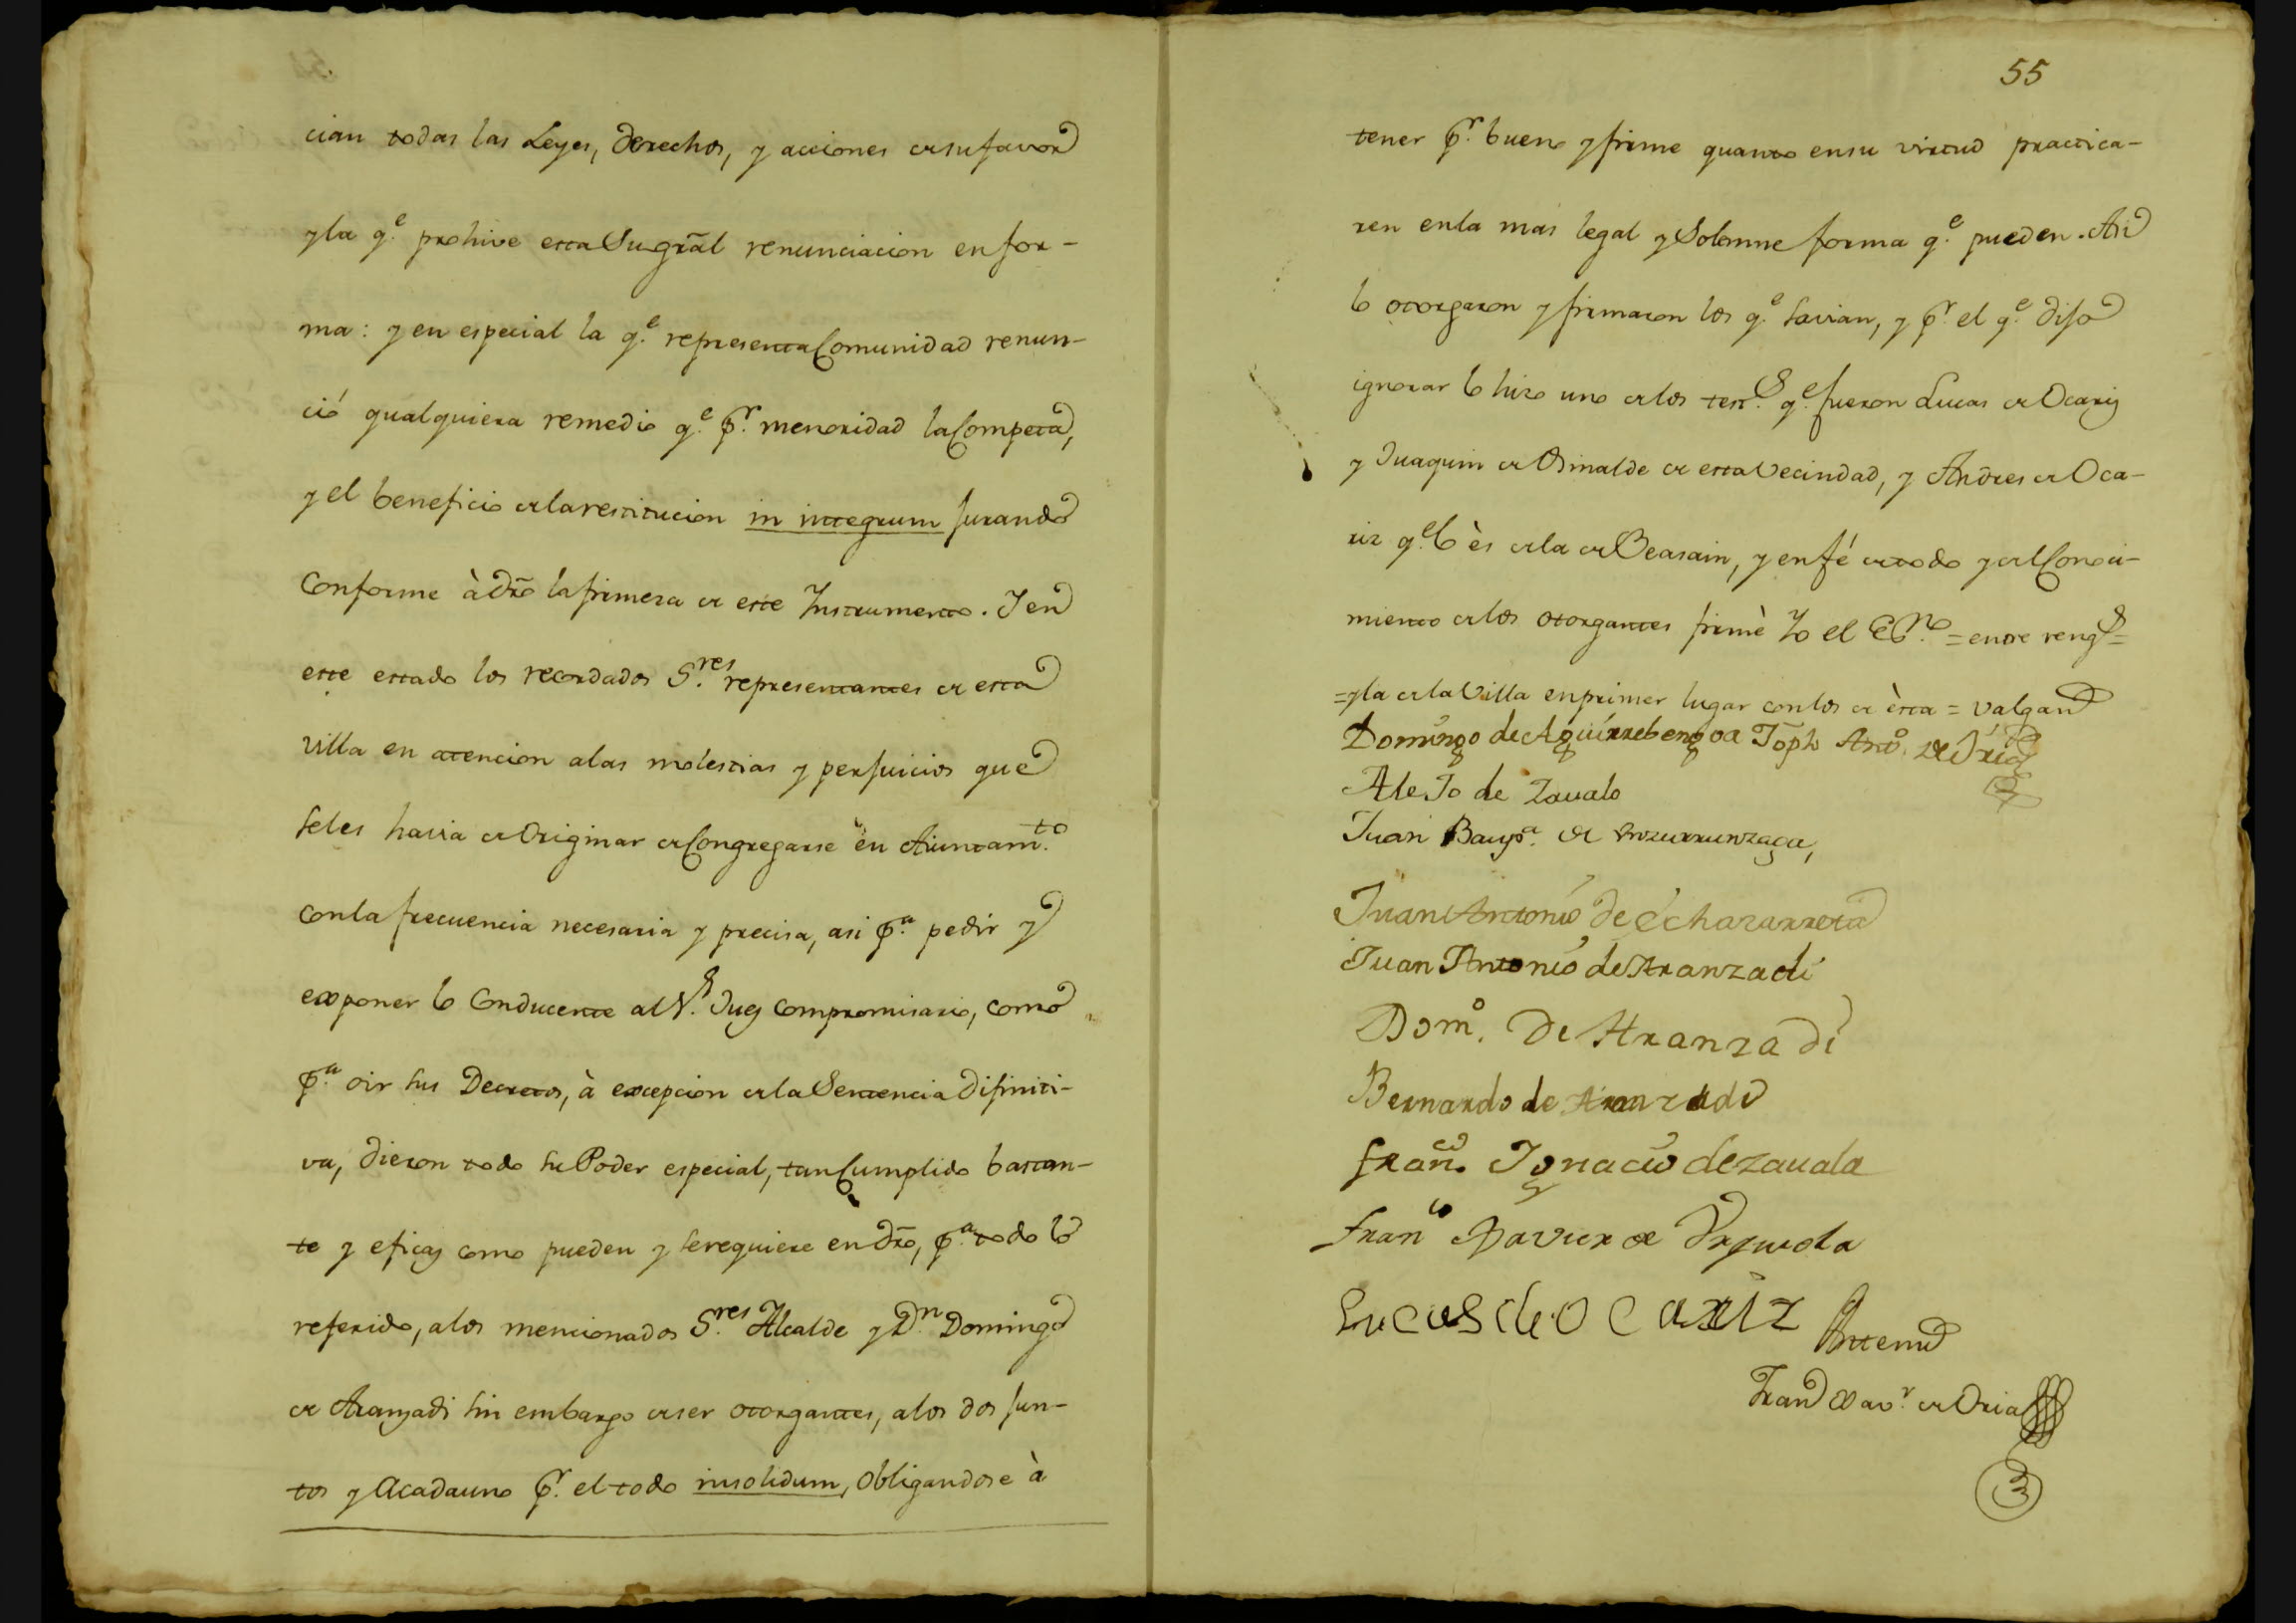 cian todas las Leyes, derechos, y acciones de su favor
y la q.e prohive esta Su grãl renunciacion en for-
ma: y en especial la q.e representa Comunidad renun-
ció qualquiera remedio q.e p.r menoridad la Competa,
y el beneficio de la restitucion in integrum jurando
Conforme à dr̃o la firmeza de este Instrumento. Y en
este estado los recordados S.res representantes de esta
villa en atencion a las molestias y perjuicios que
se les havia de Originar de Congregarse en Aiuntam.to
con la frecuencia necesaria y precisa, asi p.a pedir y
exponer lo Conducente al S.r Juez Compromisario, como
p.a oir sus Decretos, à excepcion de la Sentencia difiniti-
va, dieron todo su Poder especial, tan Cumplido bastan-
te y eficaz como pueden y se requiere en dr̃o, p.a todo lo
referido, a los mencionados S.res Alcalde y D.n Domingo
de Aranzadi sin embargo de ser otorgantes, a los dos jun-
tos y a cada uno p.r el todo insolidum, Obligandose à
55
tener p.r bueno y firme quanto en su virtud practica-
ren en la mas legal y Solemne forma q.e pueden. Asi
lo otorgaron y firmaron los q.e savian, y p.r el q.e dijo
ignorar lo hizo uno de los test.s q.e fueron Lucas de Ocariz
y Juaquin de Osinalde de esta Vecindad, y Andres de Oca-
riz q.e lo ès de la de Beasain, y en fé de todo y del Conoci-
miento de los otorgantes firmè Yo el Es.no = entre rengs =
= y la de la Villa en primer lugar con los de èsta = valgan
Domingo de Aguirrebengoa Joph Anto. de Oria
Alejo de Zavala
Juan Baup.a de Inzurrunzaga,
Juan Antonio de Echazarreta
Juan Antonio de Aranzadi
Dom.o De Aranzadi
Bernardo de Aranzadi
Fran.co Ignacio de zauala
Fran.co Xavier de Urquiola
Lucas de Ocariz
Antemi
Fran Xav.r de Oria